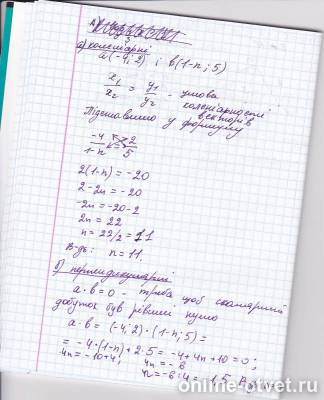 а) колінеарні
a(-4; 2) i b(1-n; 5)
x₁/x₂ = y₁/y₂ - умова
колінеарності
векторів
Підставимо у формулу
-4/1-n = 2/5
2(1-n) = -20
2-2n = -20
-2n = -20-2
2n = 22
n = 22/2 = 11
В-дь: n = 11.
б) перпендикулярні
a·b=0 - треба щоб скалярний
добуток був рівний нулю
a·b = (-4; 2)·(1-n; 5) =
= -4·(1-n)+2·5 = -4+4n+10=0;
4n = -10+4; 4n = -6
n = -6:4 = -1,5
online-otvet.ru